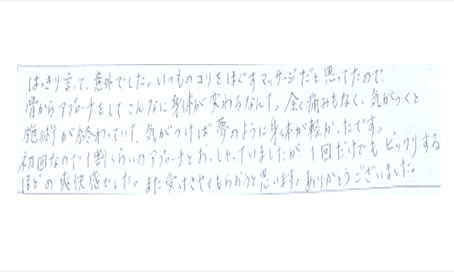 はっきり言って、意外でした。いつものコリをほぐすマッサージだと思ってたので、
骨からアプローチをしてこんなに身体が変わるなんて。全く痛みもなく、気がつくと
施術が終わっていて、気がつけば夢のように身体が軽かったです。
初回なので1割くらいのアプローチとおっしゃっていましたが、1回だけでもビックリする
ほどの爽快感でした。また受けさせてもらおうと思います。ありがとうございました。